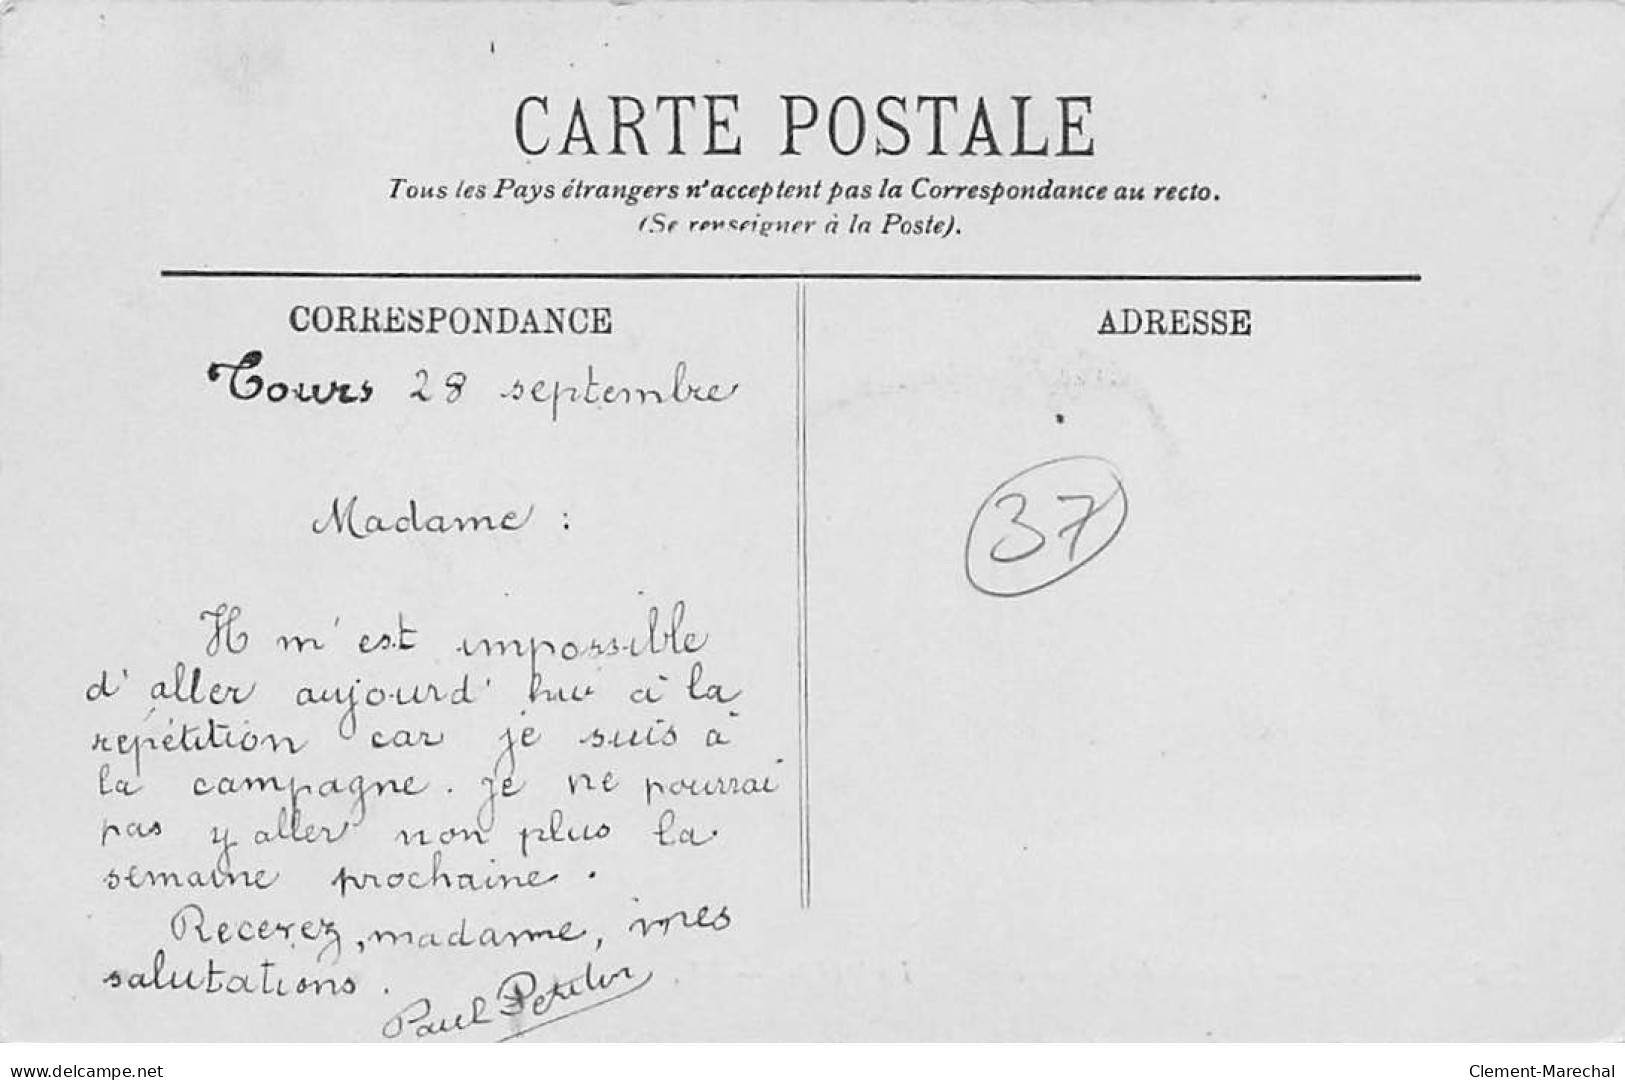 CARTE POSTALE
Tous les Pays étrangers n'acceptent pas la Correspondance au recto.
(Se renseigner à la Poste).
CORRESPONDANCE
ADRESSE
Tours 28 septembre
37
Madame :
Il m'est impossible
d'aller aujourd'hui à la
répétition car je suis à
la campagne. Je ne pourrai
pas y aller non plus la
semaine prochaine.
Recevez, madame, mes
salutations.
Paul
www.delcampe.net
Clement-Marechal